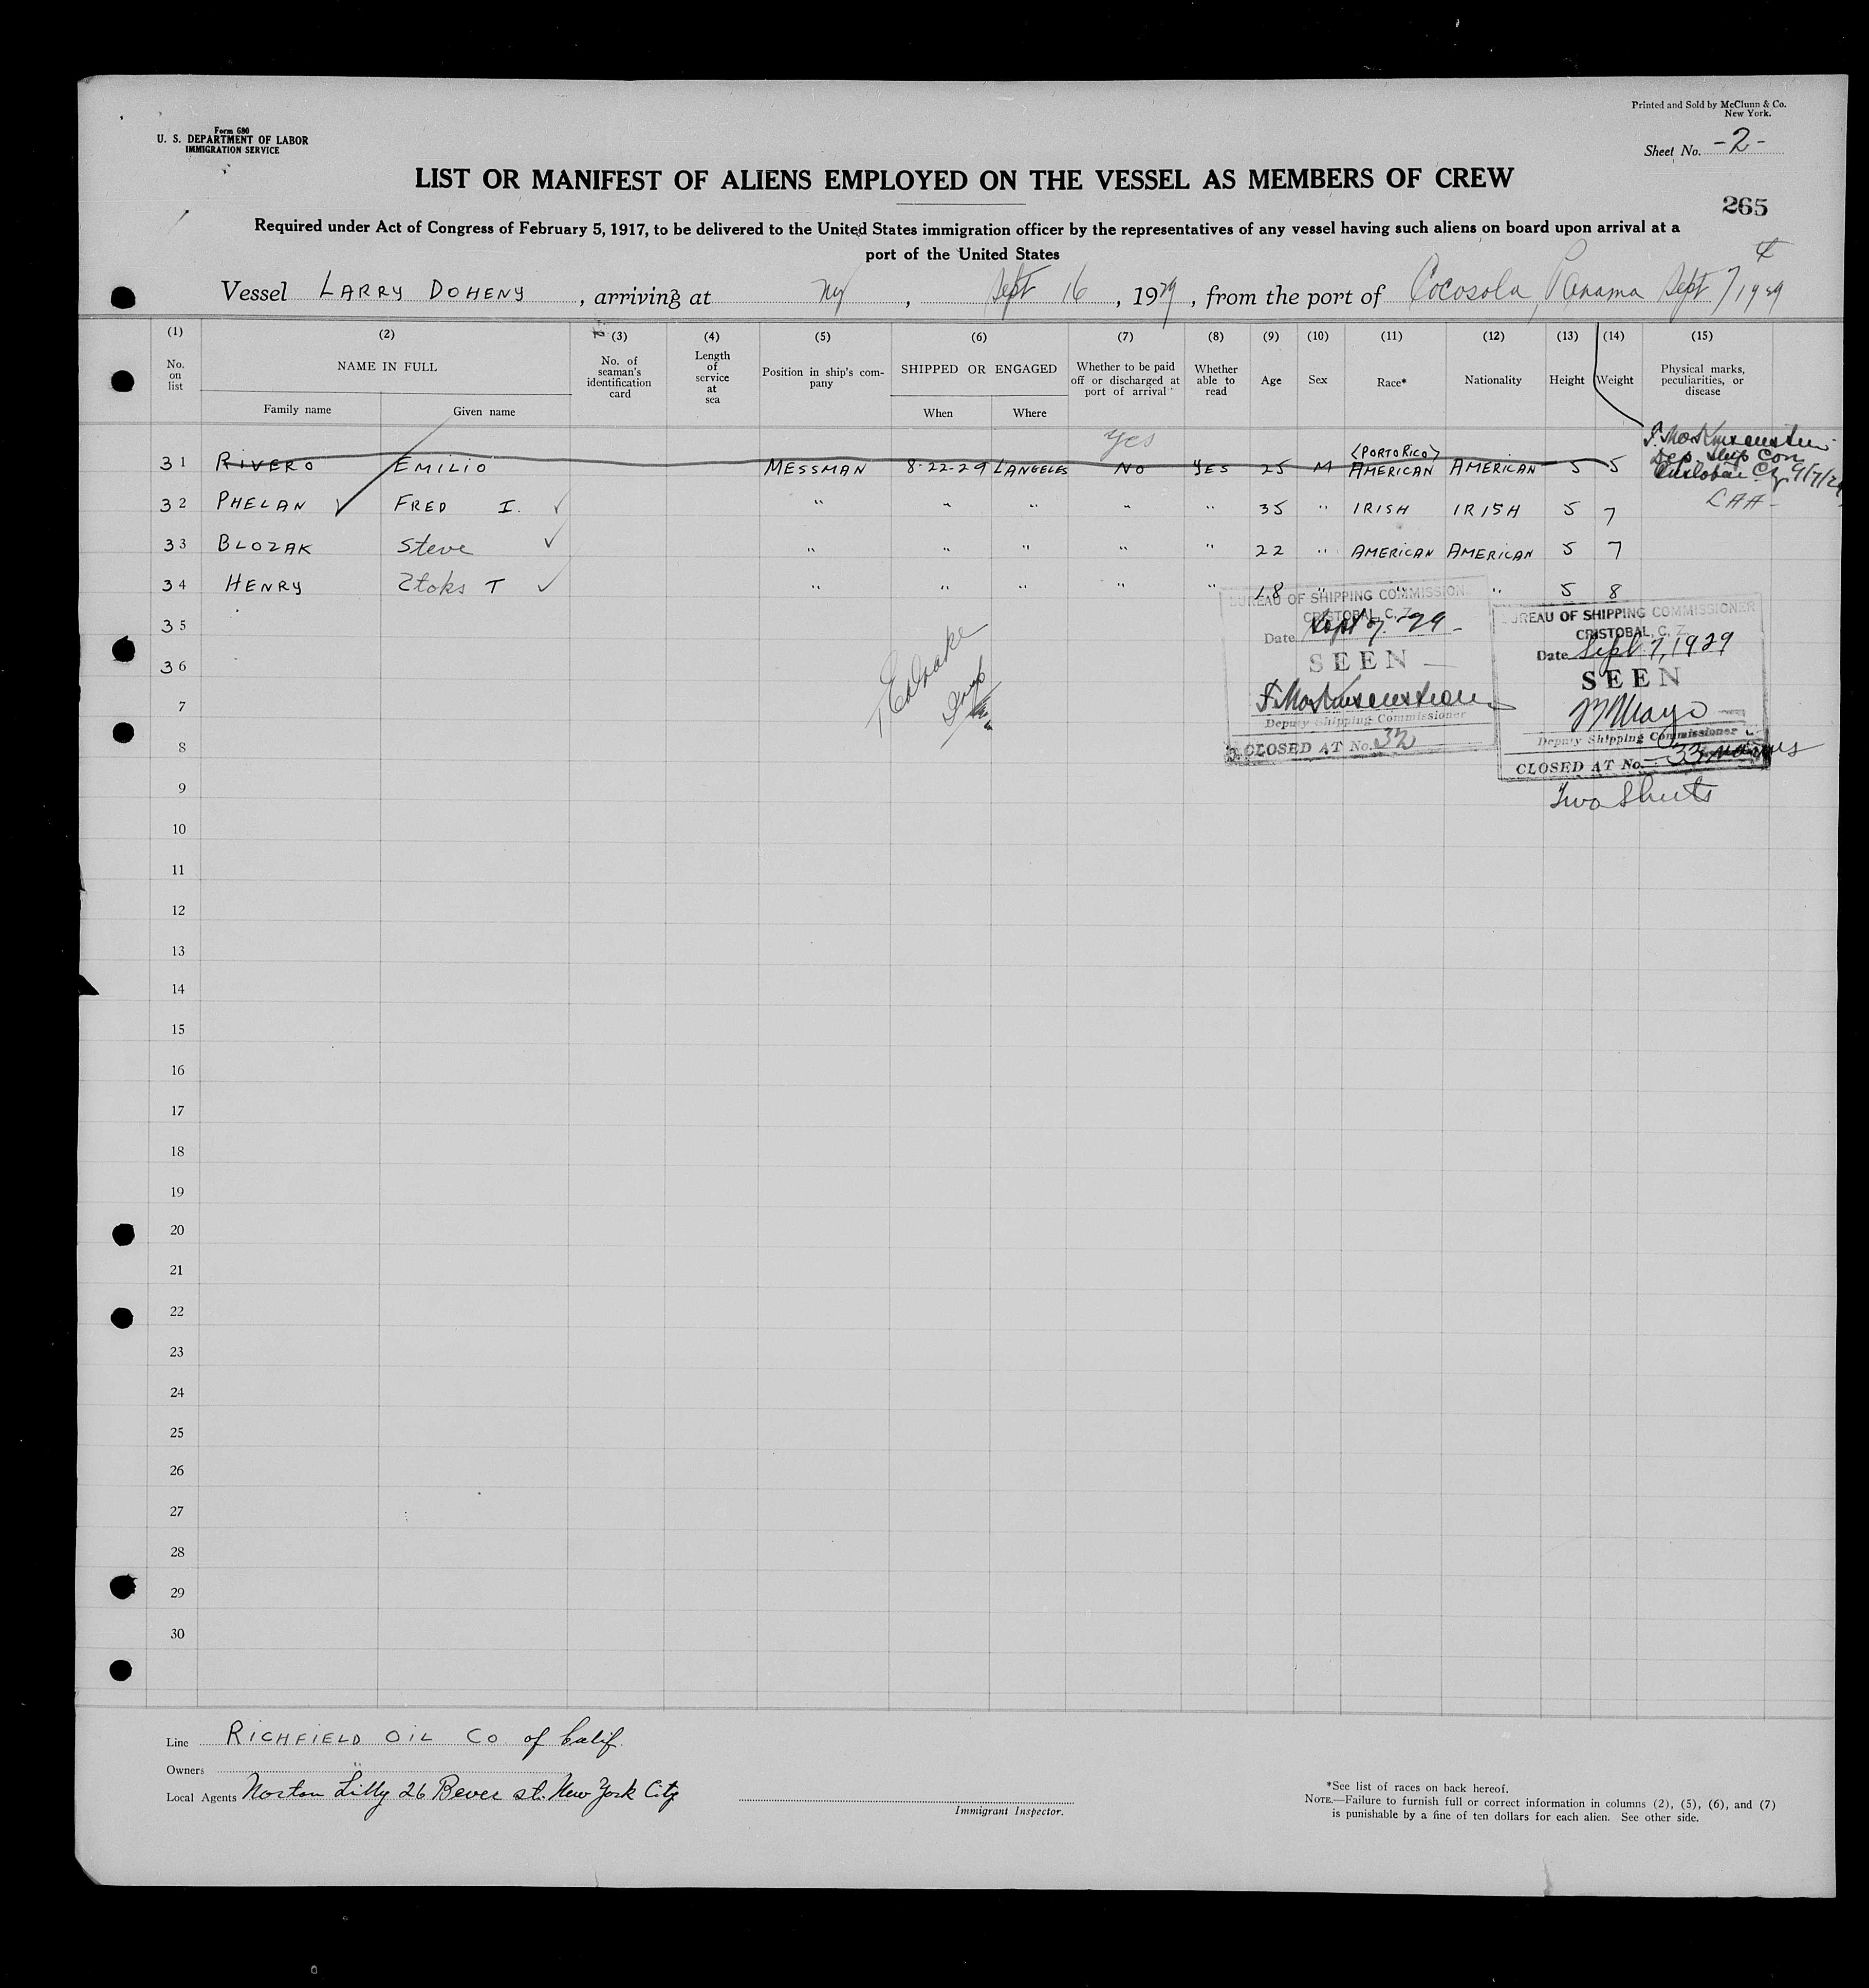 Form 680
U. S. DEPARTMENT OF LABOR
IMMIGRATION SERVICE
Printed and Sold by McClunn & Co.
New York.
Sheet No. -2-
LIST OR MANIFEST OF ALIENS EMPLOYED ON THE VESSEL AS MEMBERS OF CREW
265
Required under Act of Congress of February 5, 1917, to be delivered to the United States immigration officer by the representatives of any vessel having such aliens on board upon arrival at a
port of the United States
Vessel LARRY DOHENY, arriving at NY, Sept 16, 1929, from the port of Cocosola, Panama Sept 7 1929
(1) (2) (3) (4) (5) (6) (7) (8) (9) (10) (11) (12) (13) (14) (15)
No. on list NAME IN FULL No. of seaman's identification card Length of service at sea Position in ship's company SHIPPED OR ENGAGED Whether to be paid off or discharged at port of arrival Whether able to read Age Sex Race* Nationality Height Weight Physical marks, peculiarities, or disease
Family name Given name When Where
yes
31 RIVERO EMILIO MESSMAN 8-22-29 LANGELES NO YES 25 M (PORTO RICO) AMERICAN AMERICAN 5 5 Dep. Ship Com Cristobal C.Z. 9/7/29
32 PHELAN FRED I. " " " " " 35 " IRISH IRISH 5 7
33 BLOZAK Steve " " " " " 22 " AMERICAN AMERICAN 5 7
34 HENRY Stoks T " " " " " 18 " " " 5 8
35
36
7
8
9
10
11
12
13
14
15
16
17
18
19
20
21
22
23
24
25
26
27
28
29
30
BUREAU OF SHIPPING COMMISSION
CRISTOBAL, C. Z.
Date Sept 7-29
SEEN
Deputy Shipping Commissioner
CLOSED AT No. 32
BUREAU OF SHIPPING COMMISSIONER
CRISTOBAL, C. Z.
Date Sept 7, 1929
SEEN
Mayo
Deputy Shipping Commissioner
CLOSED AT No. 33 names
Two Sheets
Line RICHFIELD OIL CO of Calif.
Owners "
Local Agents Norton Lilly 26 Bever st. New York City
Immigrant Inspector.
*See list of races on back hereof.
NOTE.—Failure to furnish full or correct information in columns (2), (5), (6), and (7)
is punishable by a fine of ten dollars for each alien. See other side.